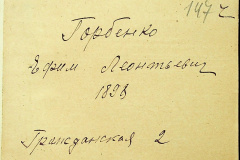 147 ч
Горбенко
Ефим Леонтьевич
1898
Гражданская 2